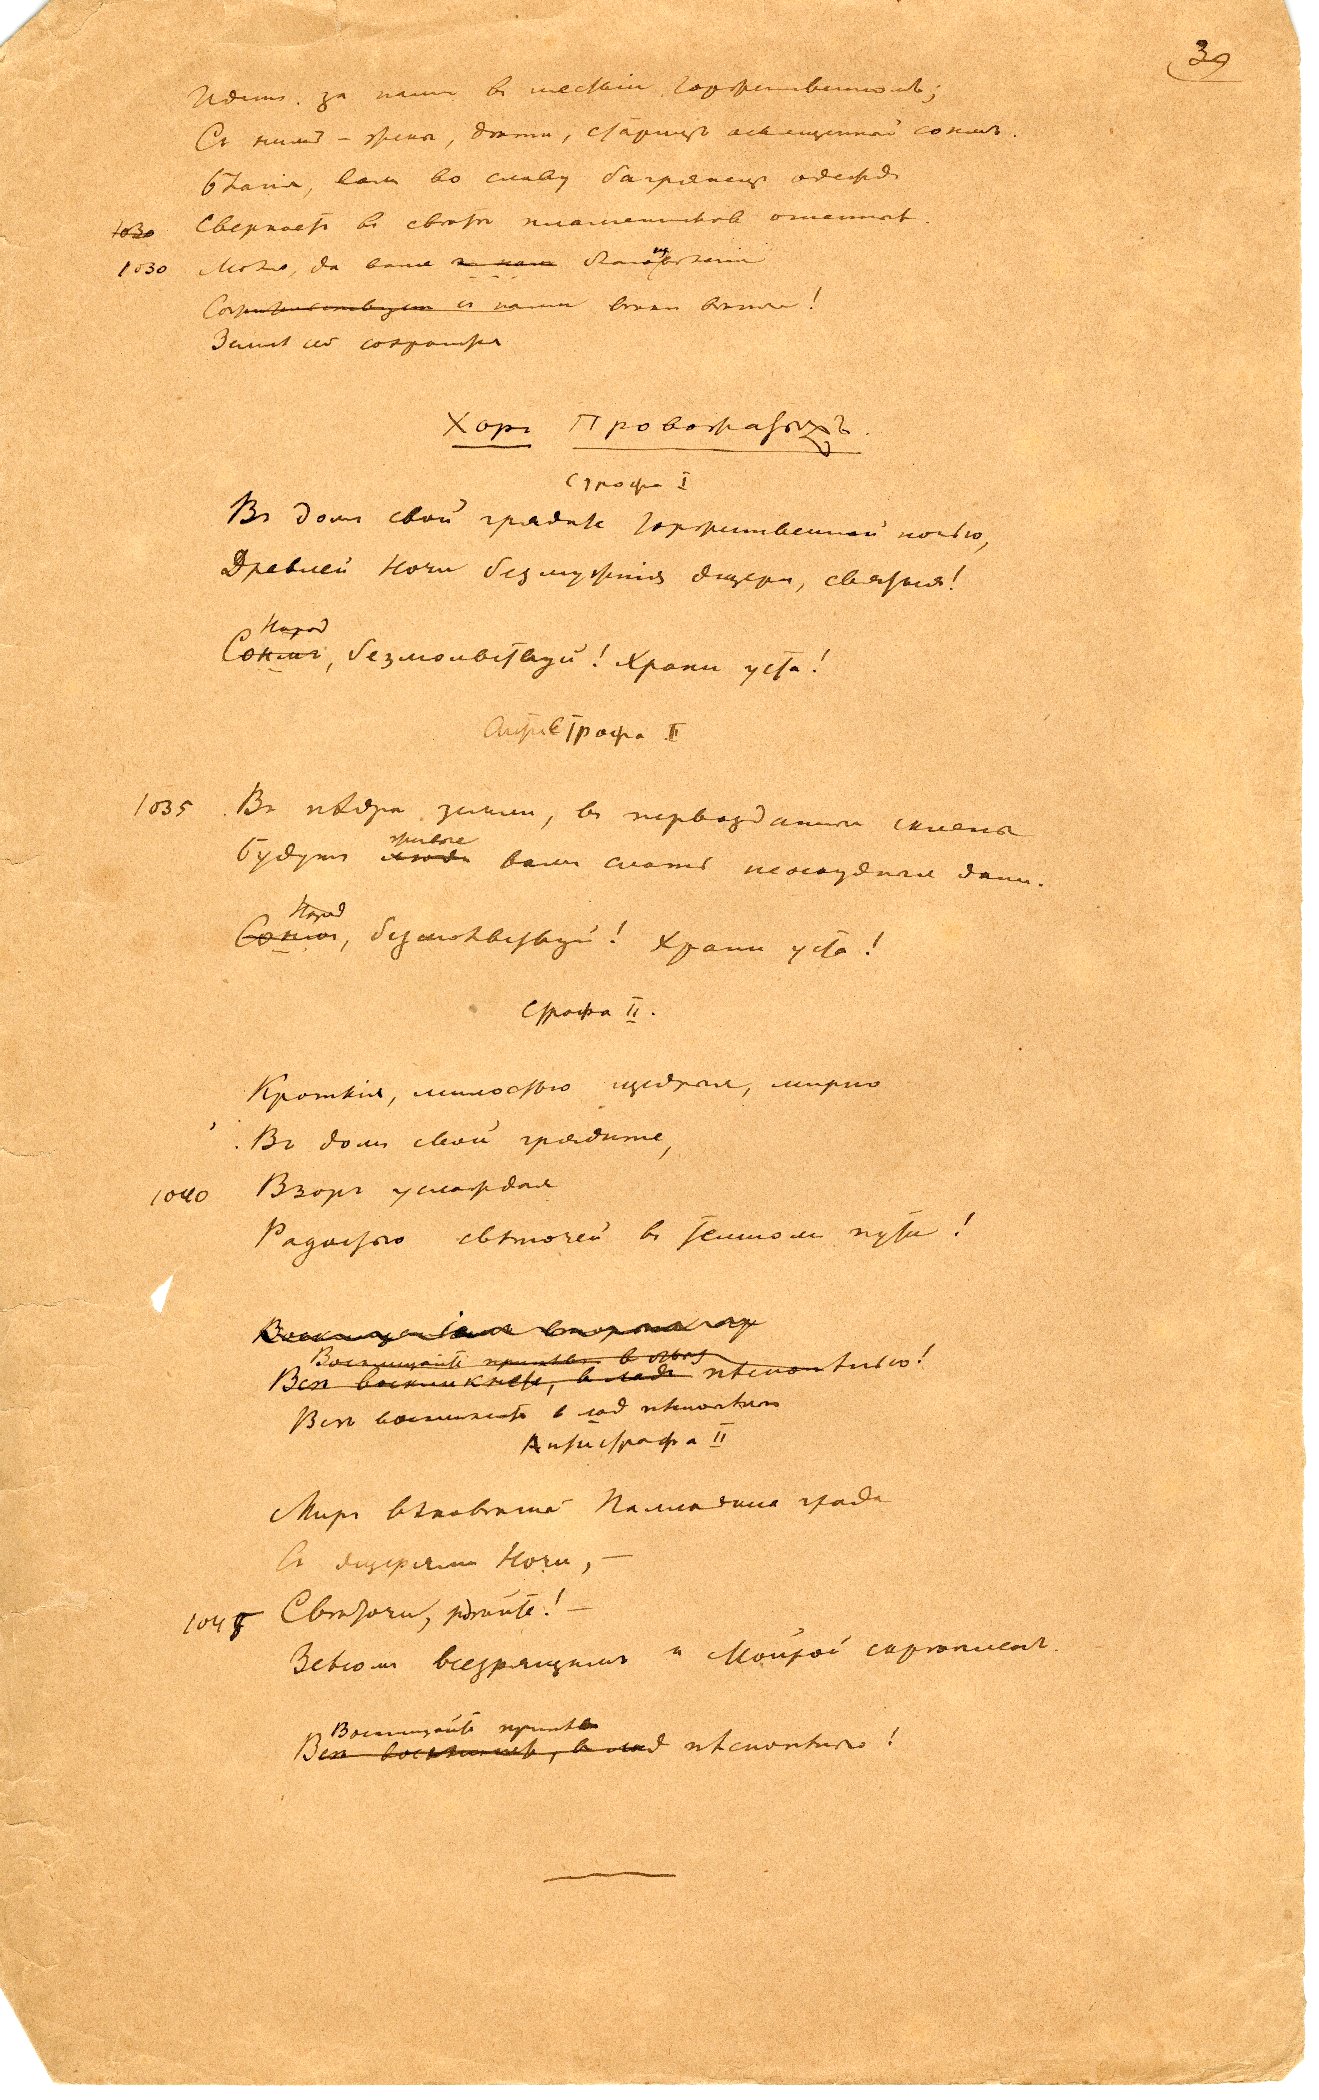 39
Идетъ за нами въ шествіи торжественномъ;
Съ ними – жены, дѣти, старицъ священный сонмъ.
Бѣлія, вамъ во славу багряницы одеждъ
1030 Сверкаетъ въ свѣтѣ пламенниковъ
1030 Молю, да ваше къ намъ благоволеніе
съ нами вѣки вѣчные!
Землѣ сей сохранится
Хоръ Провожатыхъ.
Строфа I
Въ домъ свой грядите торжественной ночью,
Древней Ночи безмужнія дщери, святыя!
Народ
Сонмъ, безмолвствуй! Храни уста!
Антистрофа I
1035 Въ нѣдра земли, въ первозданные склепы
живые
Будутъ люди вамъ слать неоскудныя дани.
Народ
Сонмъ, безмолвствуй! Храни уста!
Строфа II.
Кроткія, милостью щедрыя, мирно
Въ домъ свой грядите,
1040 Взоръ услаждая
Радостью свѣточей въ темномъ пути!
Воскликнемъ
Восклицайте припѣвъ в
Всѣ воскликнете, въ ладъ пѣснопѣнью!
Всѣ воскликните в лад пѣснопѣнью
Антистрофа II
Миръ вѣковѣчный Палладина града
Съ дщерями Ночи, –
1045 Свѣточи, рдѣйте! –
Зевсомъ всезрящимъ и Мойрой скрѣпленъ.
Восклицайте припѣвъ
Всѣ воскликнемъ, в лад пѣснопѣнью!